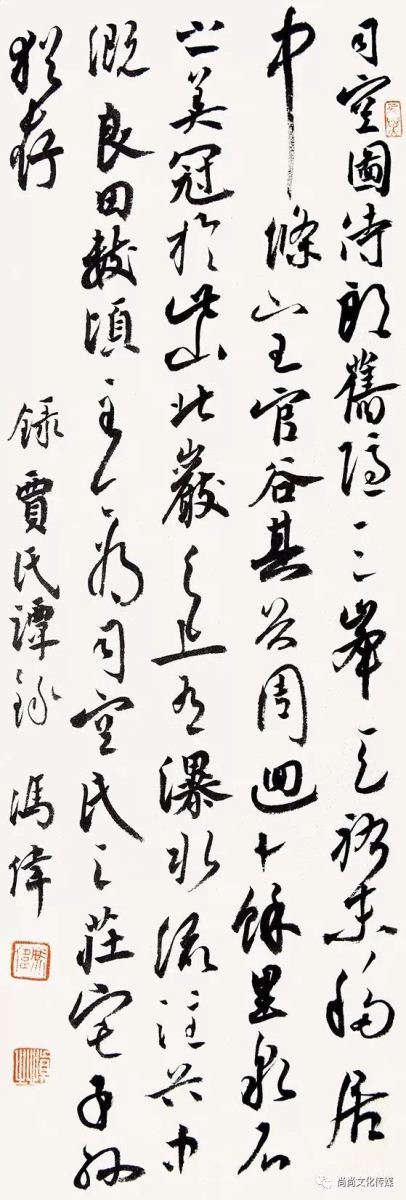 司空圖侍郎舊隱三峯天祐末移居
中條山王官谷其谷周迴十餘里泉石
之美冠於此山北巖之上有瀑水流注谷中
溉良田數頃至今為司空氏之莊宅子孫
猶存
錄賈氏譚錄 馮偉
尚尚文化传媒